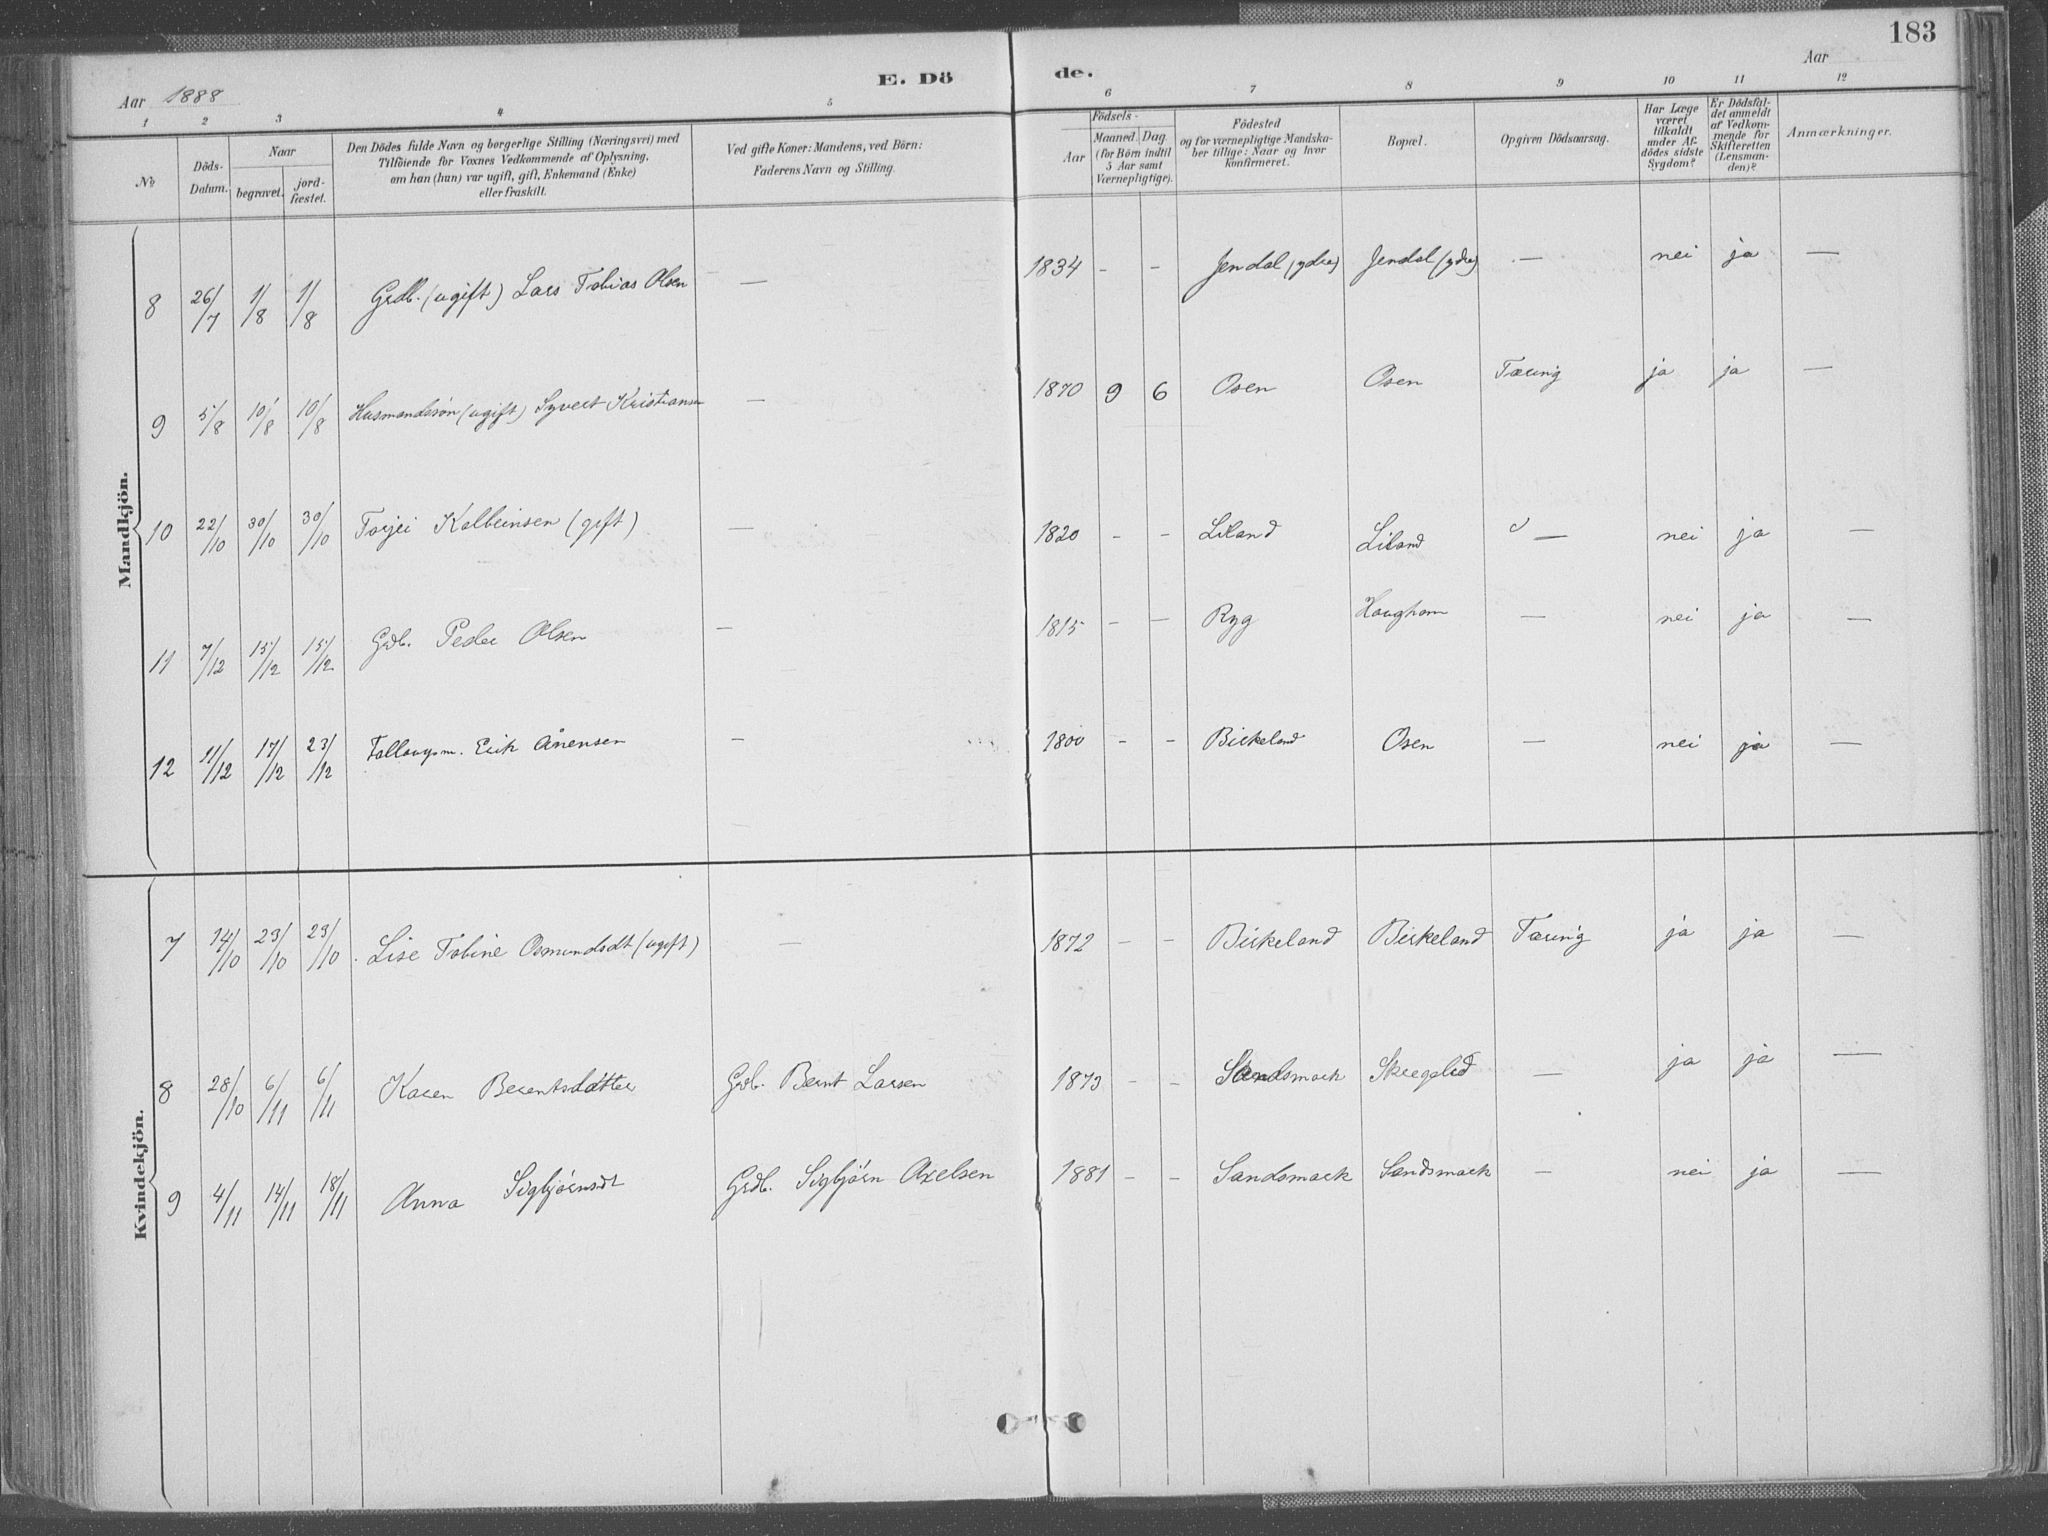 183
Aar 1888
E. Dö de.
Aar
1 2 3 4 5 6 7 8 9 10 11 12
No
Döds-Datum.
Naar
begravet.
jord-fæstet.
Den Dödes fulde Navn og borgerlige Stilling (Næringsvei) med
Tilföiende for Voxnes Vedkommende af Oplysning,
om han (hun) var ugift, gift, Enkemand (Enke)
eller fraskilt.
Ved gifte Koner: Mandens, ved Börn:
Faderens Navn og Stilling.
Födsels-
Aar
Maaned. Dag.
(for Börn indtil
5 Aar samt
Værnepligtige).
Födested
og for værnepligtige Mandska-
ber tillige: Naar og hvor
konfirmeret.
Bopæl.
Opgiven Dödsaarsag.
Har Læge
været
tilkaldt
under Af-
dödes sidste
Sygdom?
Er Dödsfal-
det anmeldt
af Vedkom-
mende for
Skifteretten
(Lensman-
den)?
Anmærkninger.
Mandkjön.
8 26/7 1/8 1/8 Grdb. (ugift) Lars Tobias Olsen — 1834 - - Jendal (ydre) Jendal (ydre) — nei ja —
9 5/8 10/8 10/8 Husmandssøn (ugift) Syvert Kristiansen — 1870 9 6 Osen Osen Tæring ja ja —
10 22/10 30/10 30/10 Torjei Kolbeinsen (gift) — 1820 - - Liland Liland — nei ja —
11 7/12 15/12 15/12 Grdb. Peder Olsen — 1815 - - Ryg Haugham — nei ja —
12 11/12 17/12 23/12 Fattaugsm. Erik Ånensen — 1800 - - Birkeland Osen — nei ja —
Kvindekjön.
7 14/10 23/10 23/10 Lise Tobine Osmundsdt (ugift) — 1872 - - Birkeland Birkeland Tæring ja ja —
8 28/10 6/11 6/11 Karen Berentsdatter Grdb. Bernt Larsen 1873 - - Sandsmark Skregelid — ja ja —
9 4/11 14/11 18/11 Anna Sigbjørnsdt Grdb. Sigbjørn Axelsen 1881 - - Sandsmark Sandsmark — nei ja —